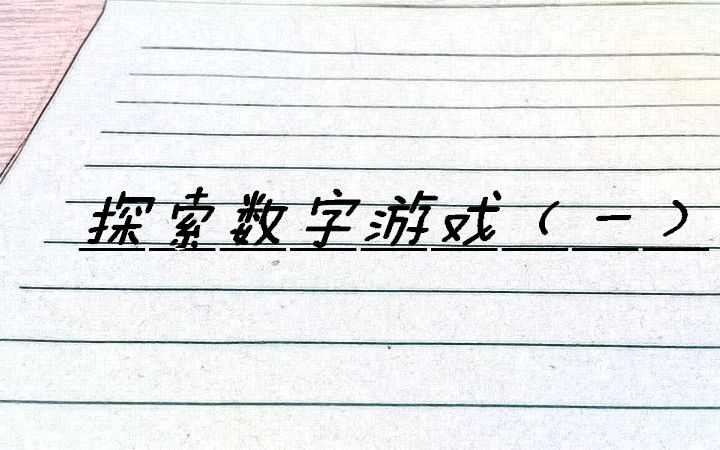 探索数字游戏（一）